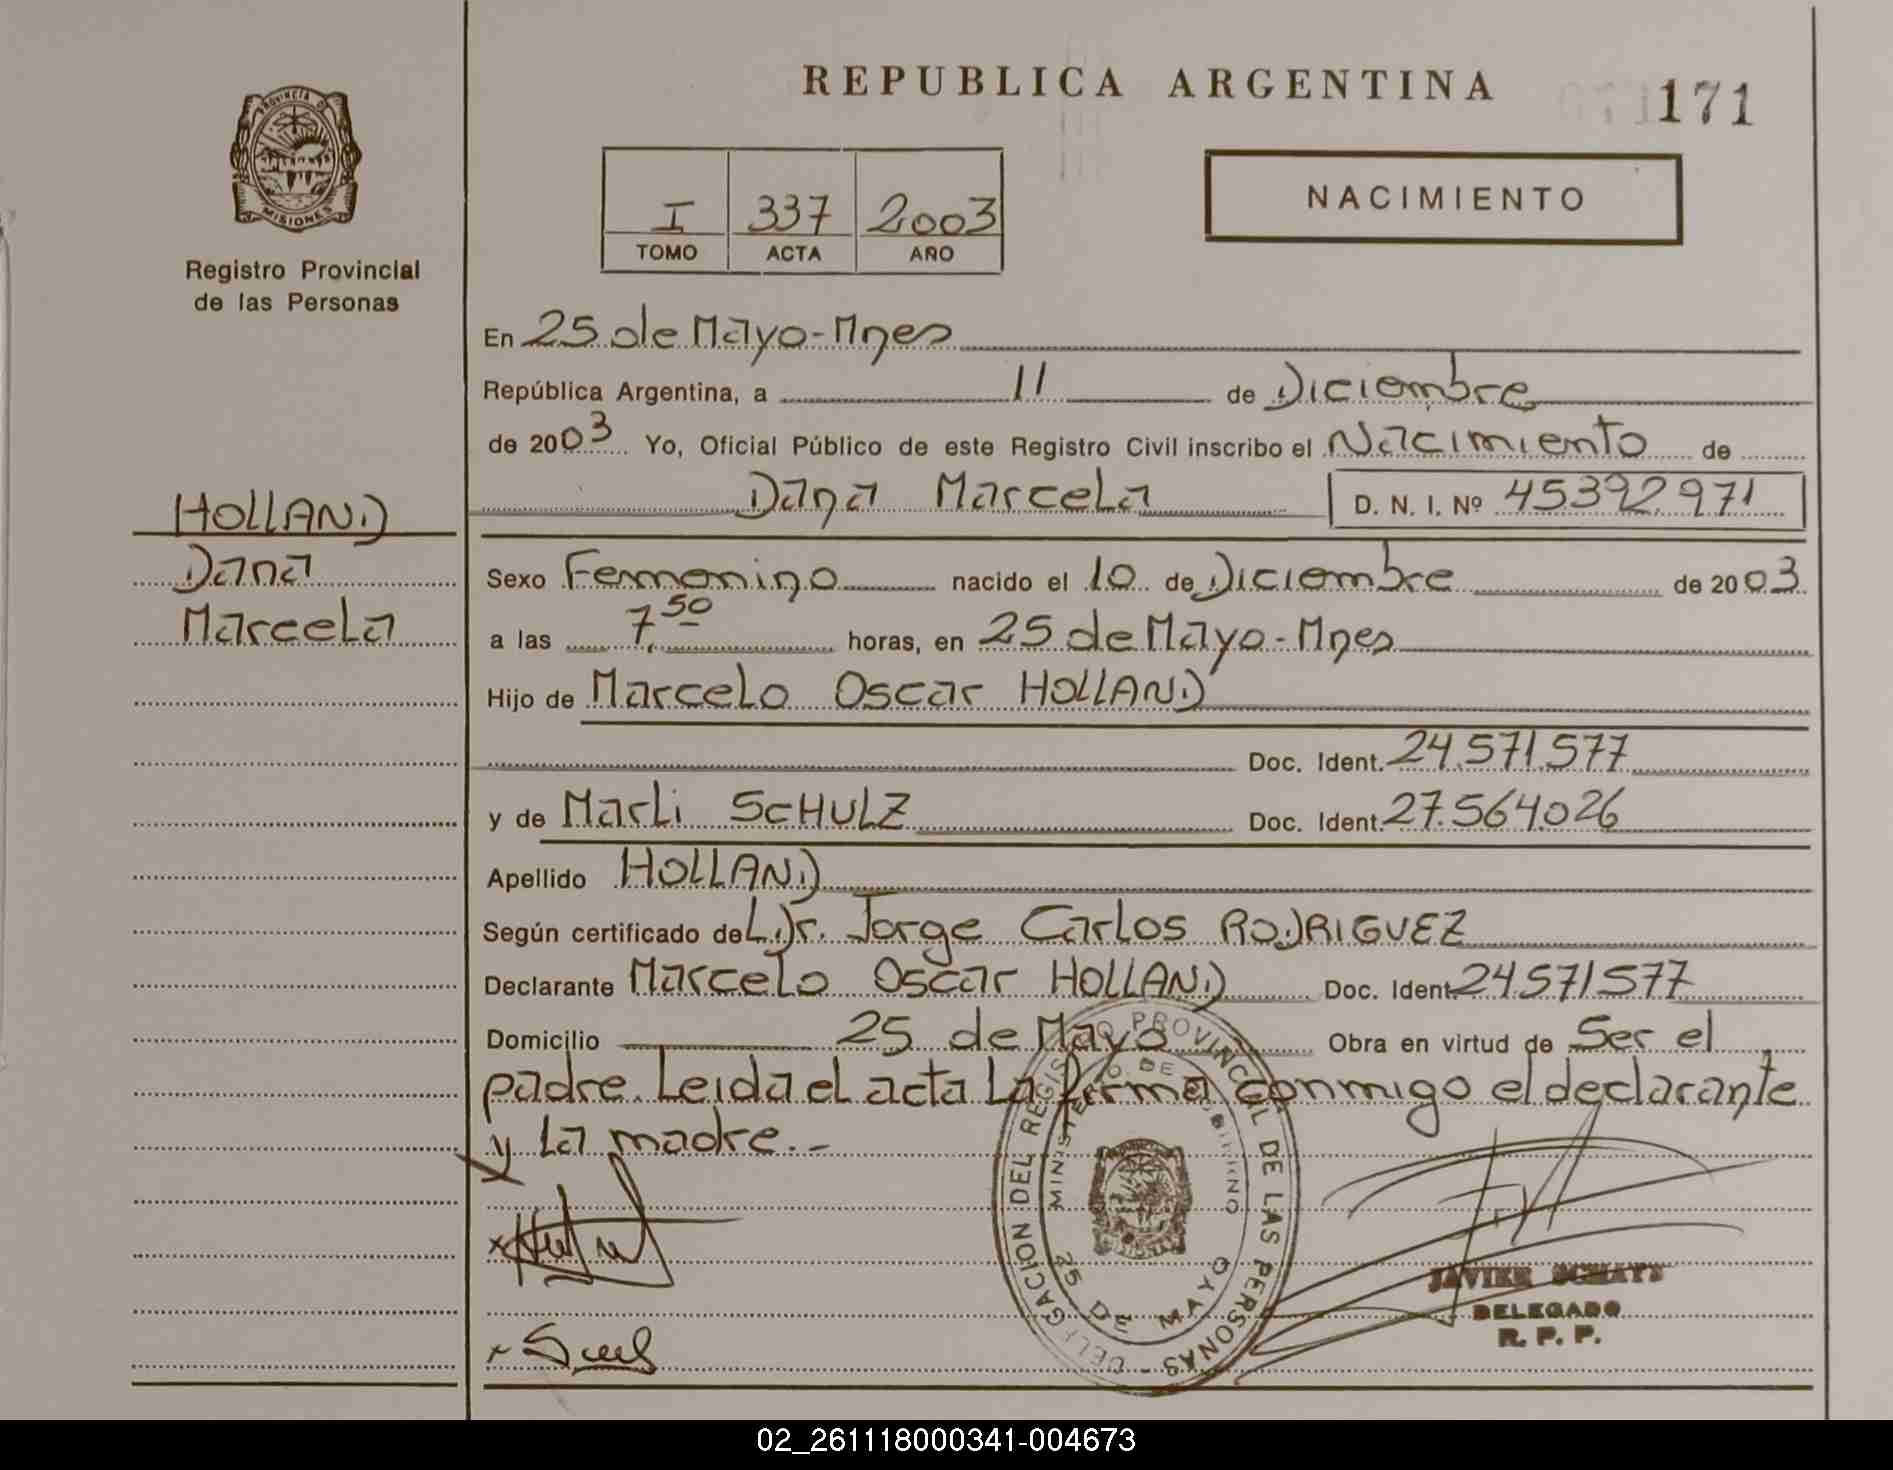 REPUBLICA ARGENTINA
171
PROVINCIA DE
MISIONES
Registro Provincial
de las Personas
I 337 2003
TOMO ACTA AÑO
NACIMIENTO
En 25 de Mayo-Mnes
República Argentina, a 11 de Diciembre
de 2003 Yo, Oficial Público de este Registro Civil inscribo el Nacimiento de
Dana Marcela D. N. I. Nº 45392971
HOLLAND
Dana
Marcela
Sexo Femenino nacido el 10 de Diciembre de 2003
a las 7,50 horas, en 25 de Mayo-Mnes
Hijo de Marcelo Oscar HOLLAND
Doc. Ident. 24.571.577
y de Marli SCHULZ Doc. Ident. 27.564.026
Apellido HOLLAND
Según certificado de L.Dr. Jorge Carlos RODRIGUEZ
Declarante Marcelo Oscar HOLLAND Doc. Ident. 24571577
Domicilio 25 de Mayo Obra en virtud de Ser el
padre. Leida el acta La firma conmigo el declarante
y La madre.-
DELEGACION DEL REGISTRO PROVINCIAL DE LAS PERSONAS -
MINISTERIO DE GOBIERNO
MISIONES
25 DE MAYO
JAVIER
DELEGADO
R. P. P.
02_261118000341-004673